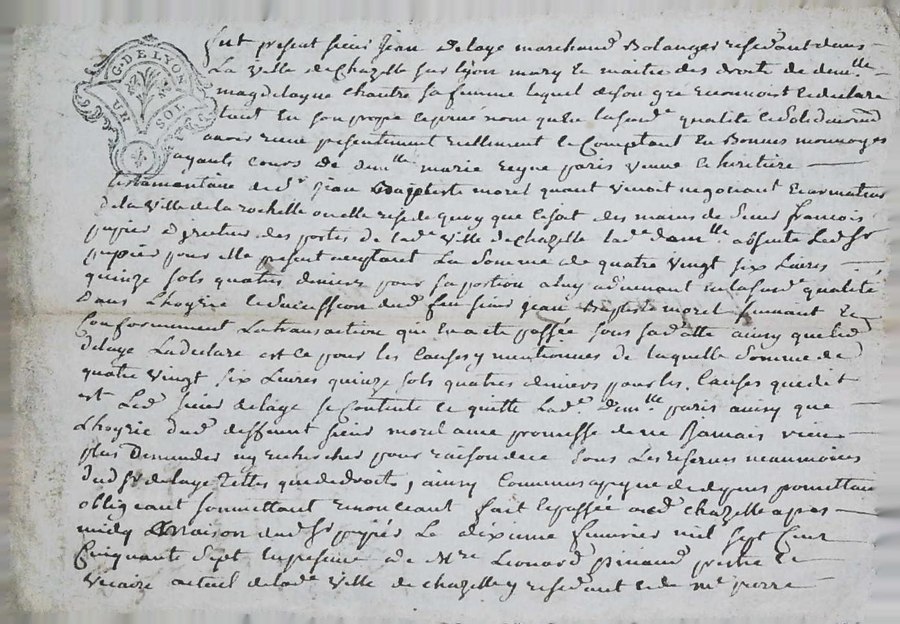 G. DE LYON
UN SOL
fut present sieur Jean Delaye marchand Bolanger residant dans
La ville de Chazelle sur lyon mary et maitre des droits de dem.lle
magdelayne Chautre sa femme lequel de son gré reconnoist et declare
tant en son propre et privé nom qu'en la susd.e qualité
avoir receu presentement reellement et Comptant en Bonnes monnoyes
ayants cours de dem.lle marie reyne paris veuve et heritiere
testamentaire de d.t sr Jean Baptiste morel quant vivoit negotiant et armateur
de la ville de la rochelle ou elle reside quoy que ce soit des mains de sieur francois
papier directeur des postes de lad.e ville de Chazelle lad.e dem.lle absente Led. Sr
papier pour elle present acceptant La somme de quatre vingt six Livres
quinze sols quatres deniers pour sa portion a luy advenant en lasusd.e qualité
Dans L'hoyrie et sucession dud. feu sieur jean Baptiste morel suivant et
Conformement La transaction qui en a été passée sous sa datte ainsy que led.
delaye La declare est ce pour les Causes y mentionnes de laquelle Somme de
quatre vingt six Livres quinze sols quatres deniers pour les Causes que dit
est Led. sieur delaye se Contente et quitte Lad.e Dem.lle paris ainsy que
L'hoyrie dud. deffunt sieur morel avec promesse de ne Jamais rien
plus Demander ny rechercher pour raison de ce sous Les reserves neanmoins
dud. Sr delaye telles que de droits, ainsy Comme promettant
obligeant soumettant renonceant fait et passée aud. chazelle apres
midy maison dud. Sr papier Le dixieme fevrier mil sept Cent
Cinquante Sept en presence de M.re Leonard Pinaud prestre et
vicaire actuel de lad.e ville de chazelle y residant et de m.e pierre